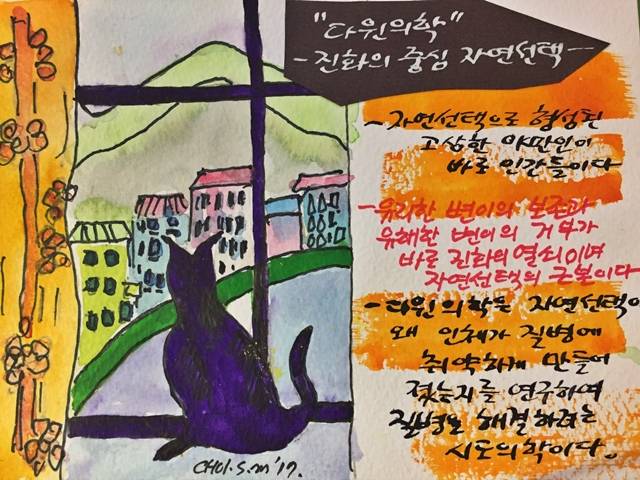 "다윈의학"
-진화의 중심 자연선택-
-자연선택으로 형성된
고상한 야만인이
바로 인간들이다
-유리한 변이의 보존과
유해한 변이의 거부가
바로 진화의 열쇠이며
자연선택의 근본이다
-다윈의학은 자연선택이
왜 인체가 질병에
취약하게 만들어
졌는지를 연구하여
질병을 해결하려는
시도의학이다。
CHOI.S.M'17.